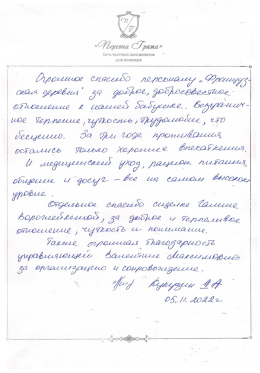 «Перевод Грина»
Сеть частных пансионатов
для пожилых
Огромное спасибо персоналу "Француз-
ская деревня" за доброе, добросовестное
отношение к нашей бабушке. Безгранич-
ное терпение, чуткость, трудолюбие, что
бесценно. За три года проживания
остались только хорошие впечатления.
И медицинский уход, рацион питания,
общение и досуг - все на самом высоком
уровне.
Отдельное спасибо сиделке Галине
за доброе и терпеливое
отношение, чуткость и понимание.
Также огромная благодарность
управляющей Валентине Максимовне
за организацию и сопровождение.
05.11.2022г